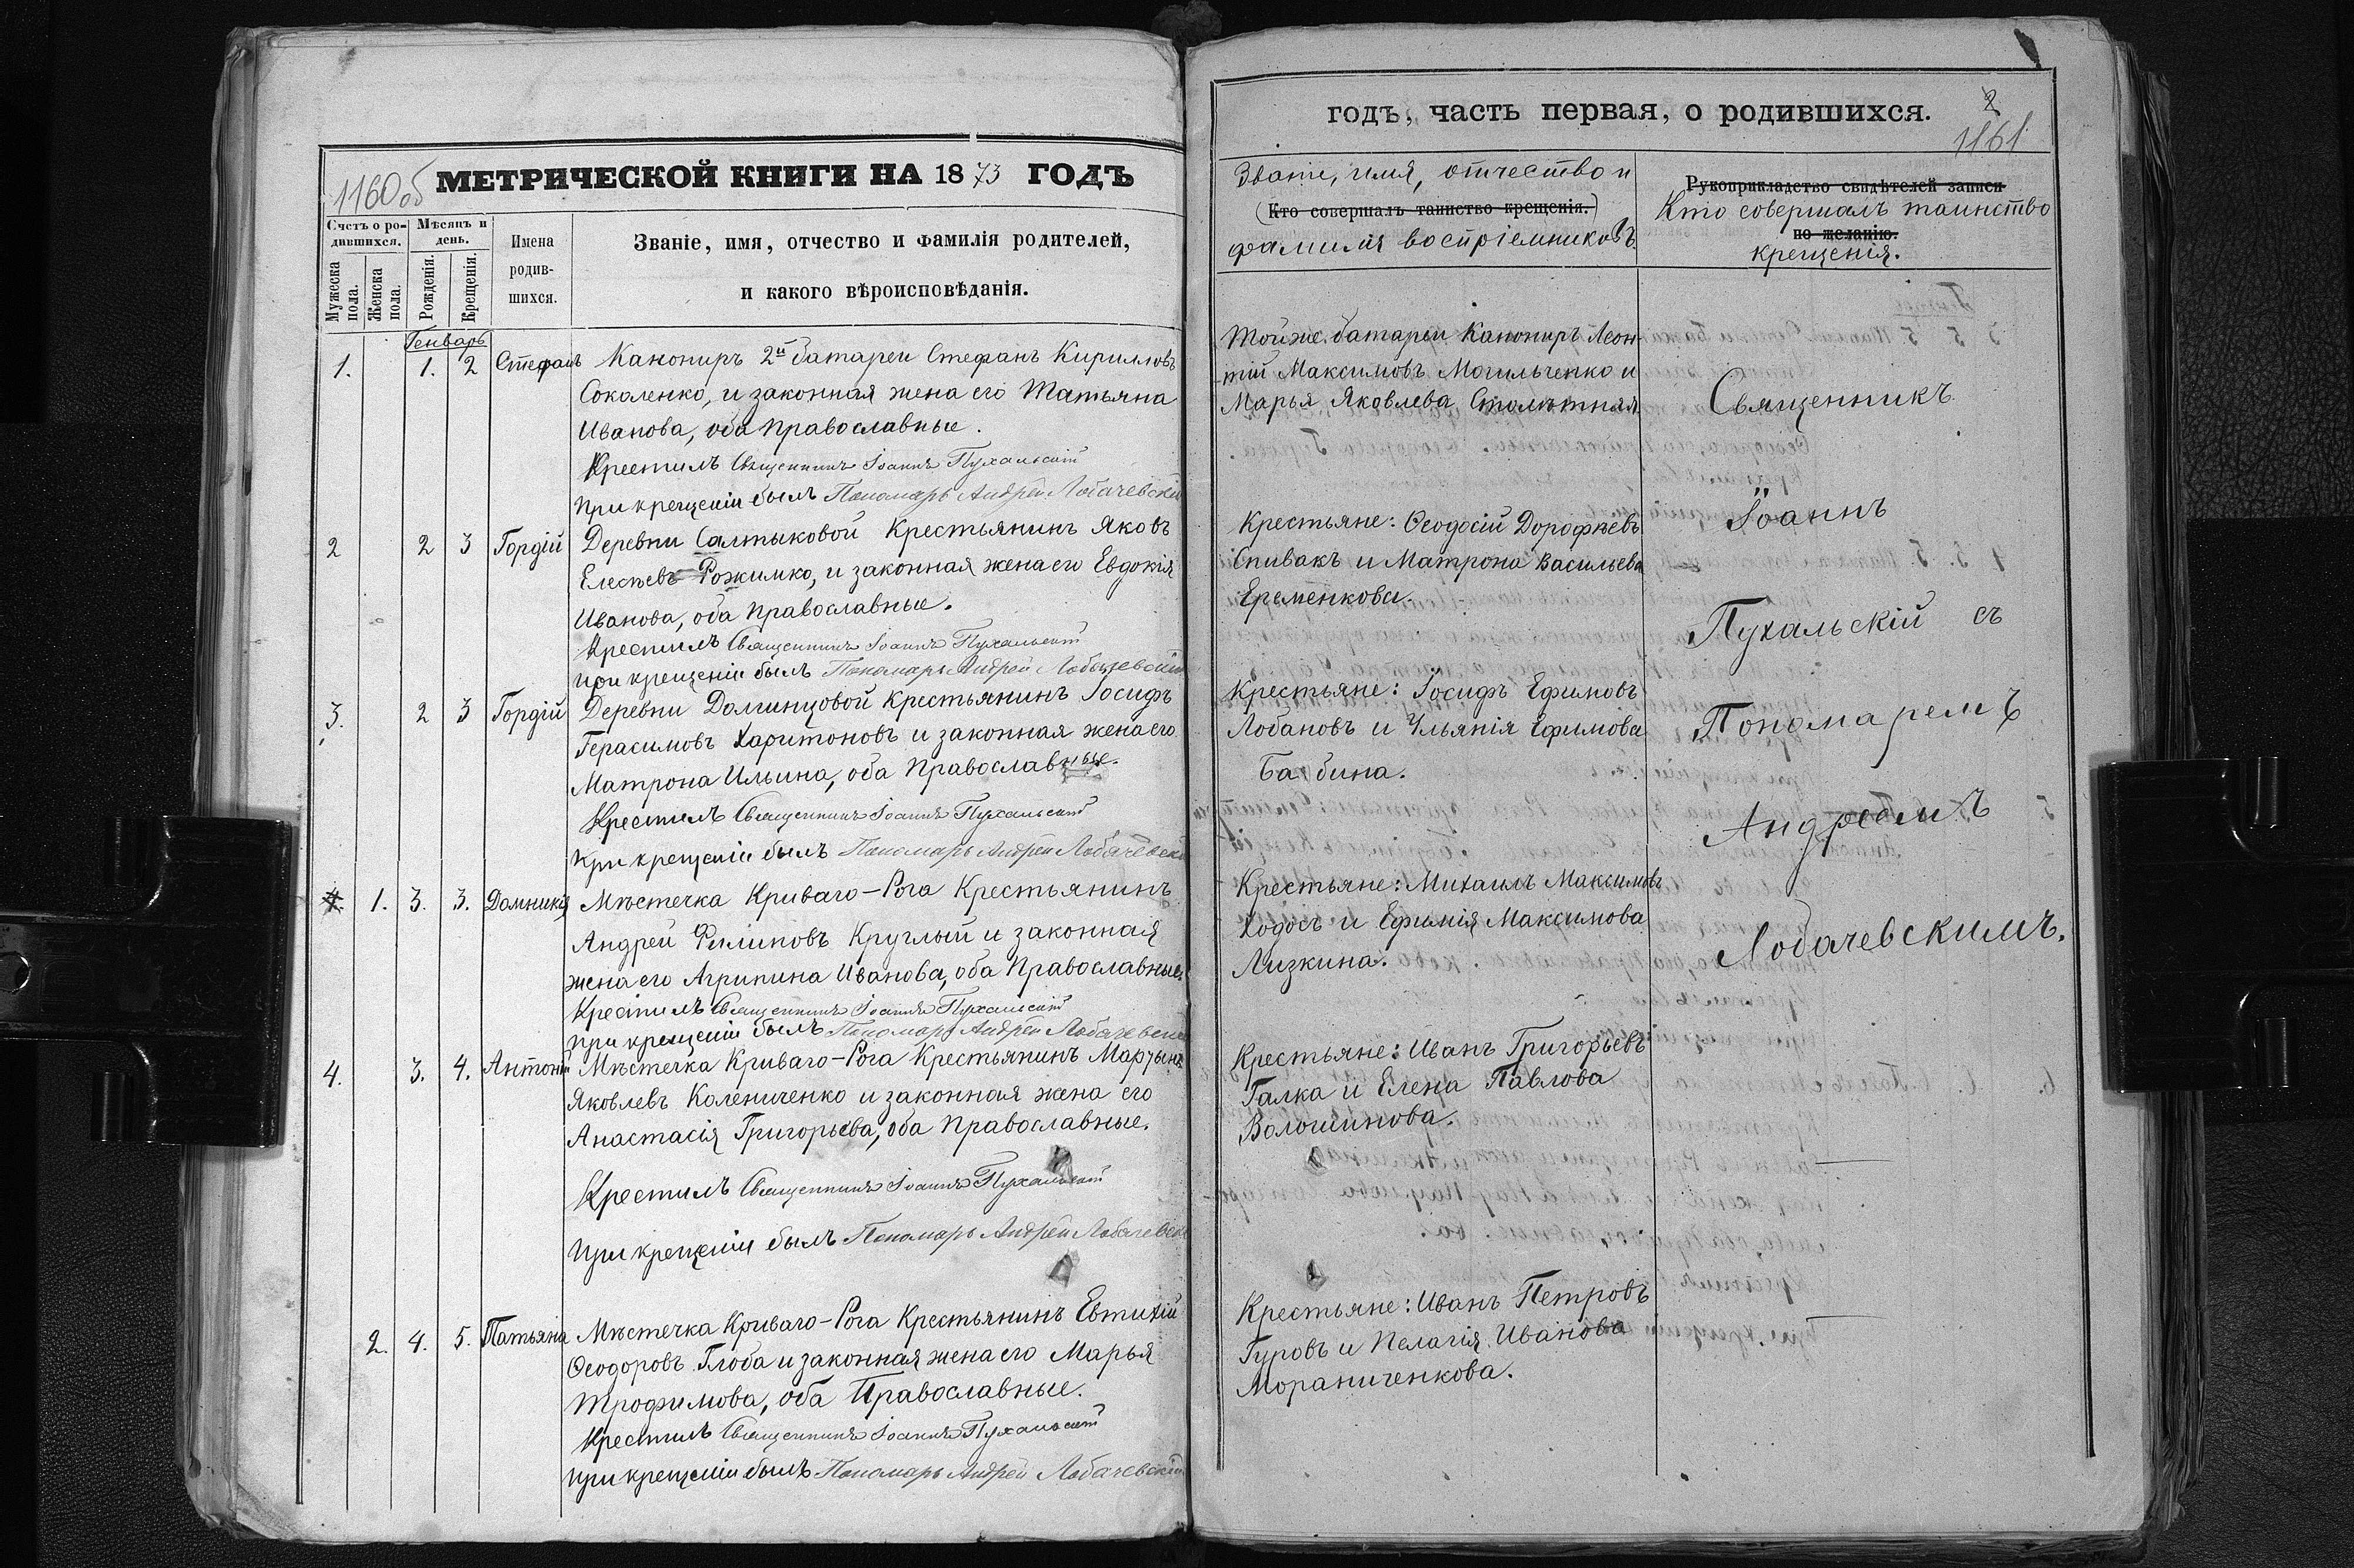 1160об МЕТРИЧЕСКОЙ КНИГИ НА 1873 ГОДЪ
Счетъ о родившихся.
Мужеска пола.
Женска пола.
Мѣсяцъ и день.
Рожденія.
Крещенія.
Имена родив-
шихся.
Званіе, имя, отчество и фамилія родителей,
и какого вѣроисповѣданія.
Генварь
1. 1. 2 Стефанъ Канониръ 2й батареи Стефанъ Кирилловъ
Соколенко, и законная жена его Татьяна
Иванова, оба православные.
Крестилъ Священникъ Іоаннъ Пухальскій
При крещеніи былъ Пономарь Андрей Лобачевскій
2 2 3 Гордій Деревни Салтыковой Крестьянинъ Яковъ
Елесѣевъ Рожимко, и законная жена его Евдокія
Иванова, оба православные.
Крестилъ Священникъ Іоаннъ Пухальскій
При крещеніи былъ Пономарь Андрей Лобачевскій
3. 2 3 Гордій Деревни Долгинцовой Крестьянинъ Іосифъ
Герасимовъ Харитоновъ и законная жена его
Матрона Ильина, оба Православные.
Крестилъ Священникъ Іоаннъ Пухальскій
При крещеніи былъ Пономарь Андрей Лобачевскій
4. 1. 3. 3. Домникія Мѣстечка Криваго-Рога Крестьянинъ
Андрей Филиповъ Круглый и законная
жена его Агрипина Иванова, оба Православные.
Крестилъ Священникъ Іоаннъ Пухальскій
При крещеніи былъ Пономарь Андрей Лобачевскій
4. 3. 4. Антоній Мѣстечка Криваго-Рога Крестьянинъ Мартынъ
Яковлевъ Колениченко и законная жена его
Анастасія Григорьева, оба Православные.
Крестилъ Священникъ Іоаннъ Пухальскій
При крещеніи былъ Пономарь Андрей Лобачевскій
2. 4. 5. Татьяна Мѣстечка Криваго-Рога Крестьянинъ Евтихій
Ѳеодоровъ Глоба и законная жена его Марья
Трофимова, оба Православные.
Крестилъ Священникъ Іоаннъ Пухальскій
При крещеніи былъ Пономарь Андрей Лобачевскій
годъ, часть первая, о родившихся.
2
1161
Званіе, имя, отчество и
(Кто совершалъ таинство крещенія.)
фамилія воспріемниковъ.
Рукоприкладство свидѣтелей записи
Кто совершалъ таинство
по желанію.
крещенія.
Тойже батареи Канониръ Леон-
тій Максимовъ Могильченко и
Марья Яковлева Столѣтная
Крестьяне: Ѳеодосій Дорофѣевъ
Спивакъ и Матрона Васильева
Еременкова.
Крестьяне: Іосифъ Ефимовъ
Лобановъ и Ульянія Ефимова
Бабина.
Крестьяне: Михаилъ Максимовъ
Ходосъ и Ефимія Максимова
Лизкина.
Крестьяне: Иванъ Григорьевъ
Галка и Елена Павлова
Волошинова.
Крестьяне: Иванъ Петровъ
Гуровъ и Пелагія Иванова
Мораниченкова.
Священникъ
Іоаннъ
Пухальскій съ
Пономаремъ
Андреемъ
Лобачевскимъ.